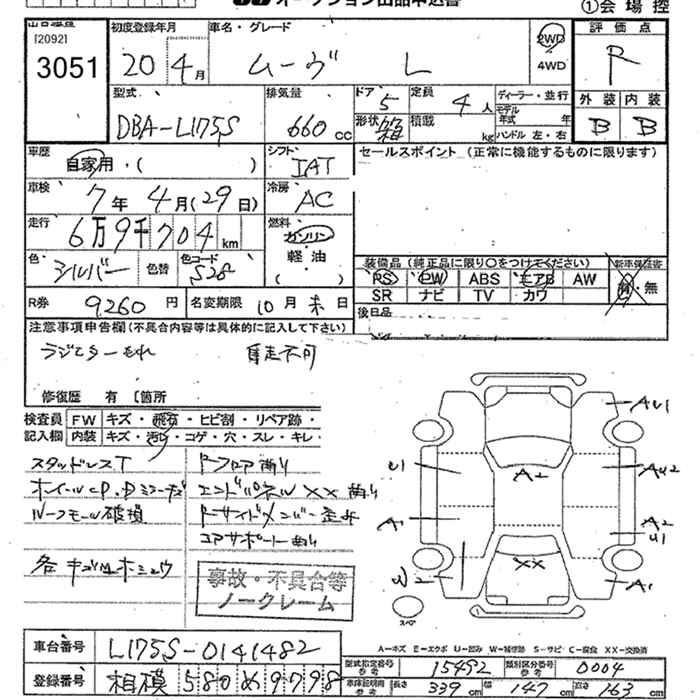 オークション出品申込書
①会場控
[2092]
3051
初度登録年月
20年 4月
車名・グレード
ムーヴ L
2WD
4WD
評価点
R
型式
DBA-L175S
排気量
660cc
ドア
5
定員
4人
ディーラー・並行
モデル年式 年
形状 箱
積載 kg
ハンドル 左・右
外装 内装
B B
車歴
自家用・( )
シフト
IAT
セールスポイント (正常に機能するものに限ります)
車検
7年 4月(29日)
冷房
AC
走行
6万9千704km
燃料
ガソリン
軽油
( )
色
シルバー
色替
色コード
S28
装備品 (純正品に限り○をつけてください)
新車保証書
PS PW ABS エアB AW
SR ナビ TV カワ
有・無
R券 9,260円
名変期限 10月末日
後日品
注意事項申告欄(不具合内容等は具体的に記入して下さい)
ラジエターもれ 自走不可
修復歴 有 [箇所
検査員記入欄
FW キズ・飛石・ヒビ割・リペア跡・
内装 キズ・汚れ・コゲ・穴・スレ・キレ・
スタッドレスT
ルーフモール破損
各キズ
事故・不具合等
ノークレーム
AU1
U1
A2
AU2
A1
A2
U1
W
XX
A1
スペア
A-キズ E-エクボ U-凹み W-補修跡 S-サビ C-腐食 XX-交換済
車台番号 L175S-0141482
登録番号 相模 580 め 9798
型式指定番号 参考 15492
類別区分番号 参考 0004
車庫証明用 参考 長さ 339cm 幅 147cm 高さ 163cm